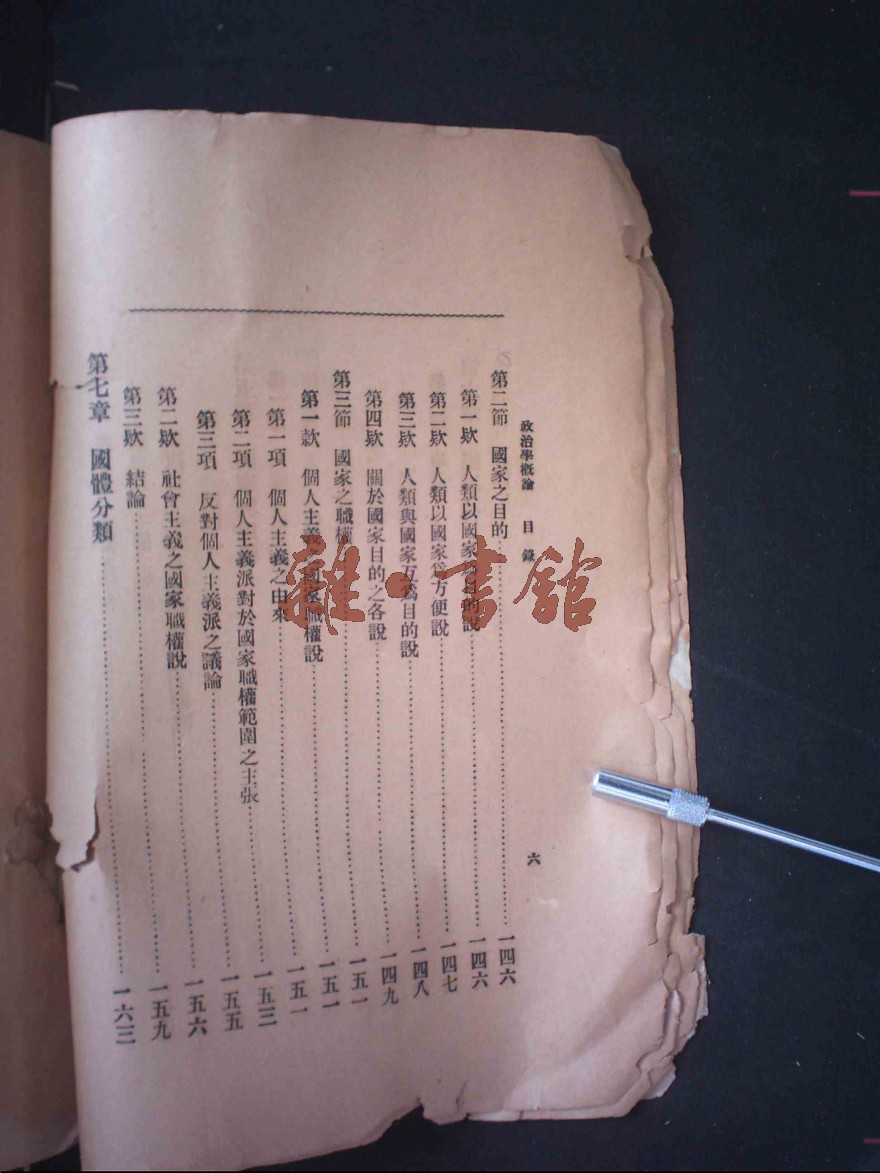 政治學概論 目錄 六
第二節 國家之目的……一四六
第一欵 人類以國家爲目的說……一四六
第二欵 人類以國家爲方便說……一四七
第三欵 人類與國家互爲目的說……一四八
第四欵 關於國家目的之各說……一四九
第三節 國家之職權……一五一
第一款 個人主義之國家職權說……一五一
第一項 個人主義之由來……一五一
第二項 個人主義派對於國家職權範圍之主張……一五三
第三項 反對個人主義派之議論……一五五
第二欵 社會主義之國家職權說……一五六
第三欵 結論……一五九
第七章 國體分類……一六三
雜·書館